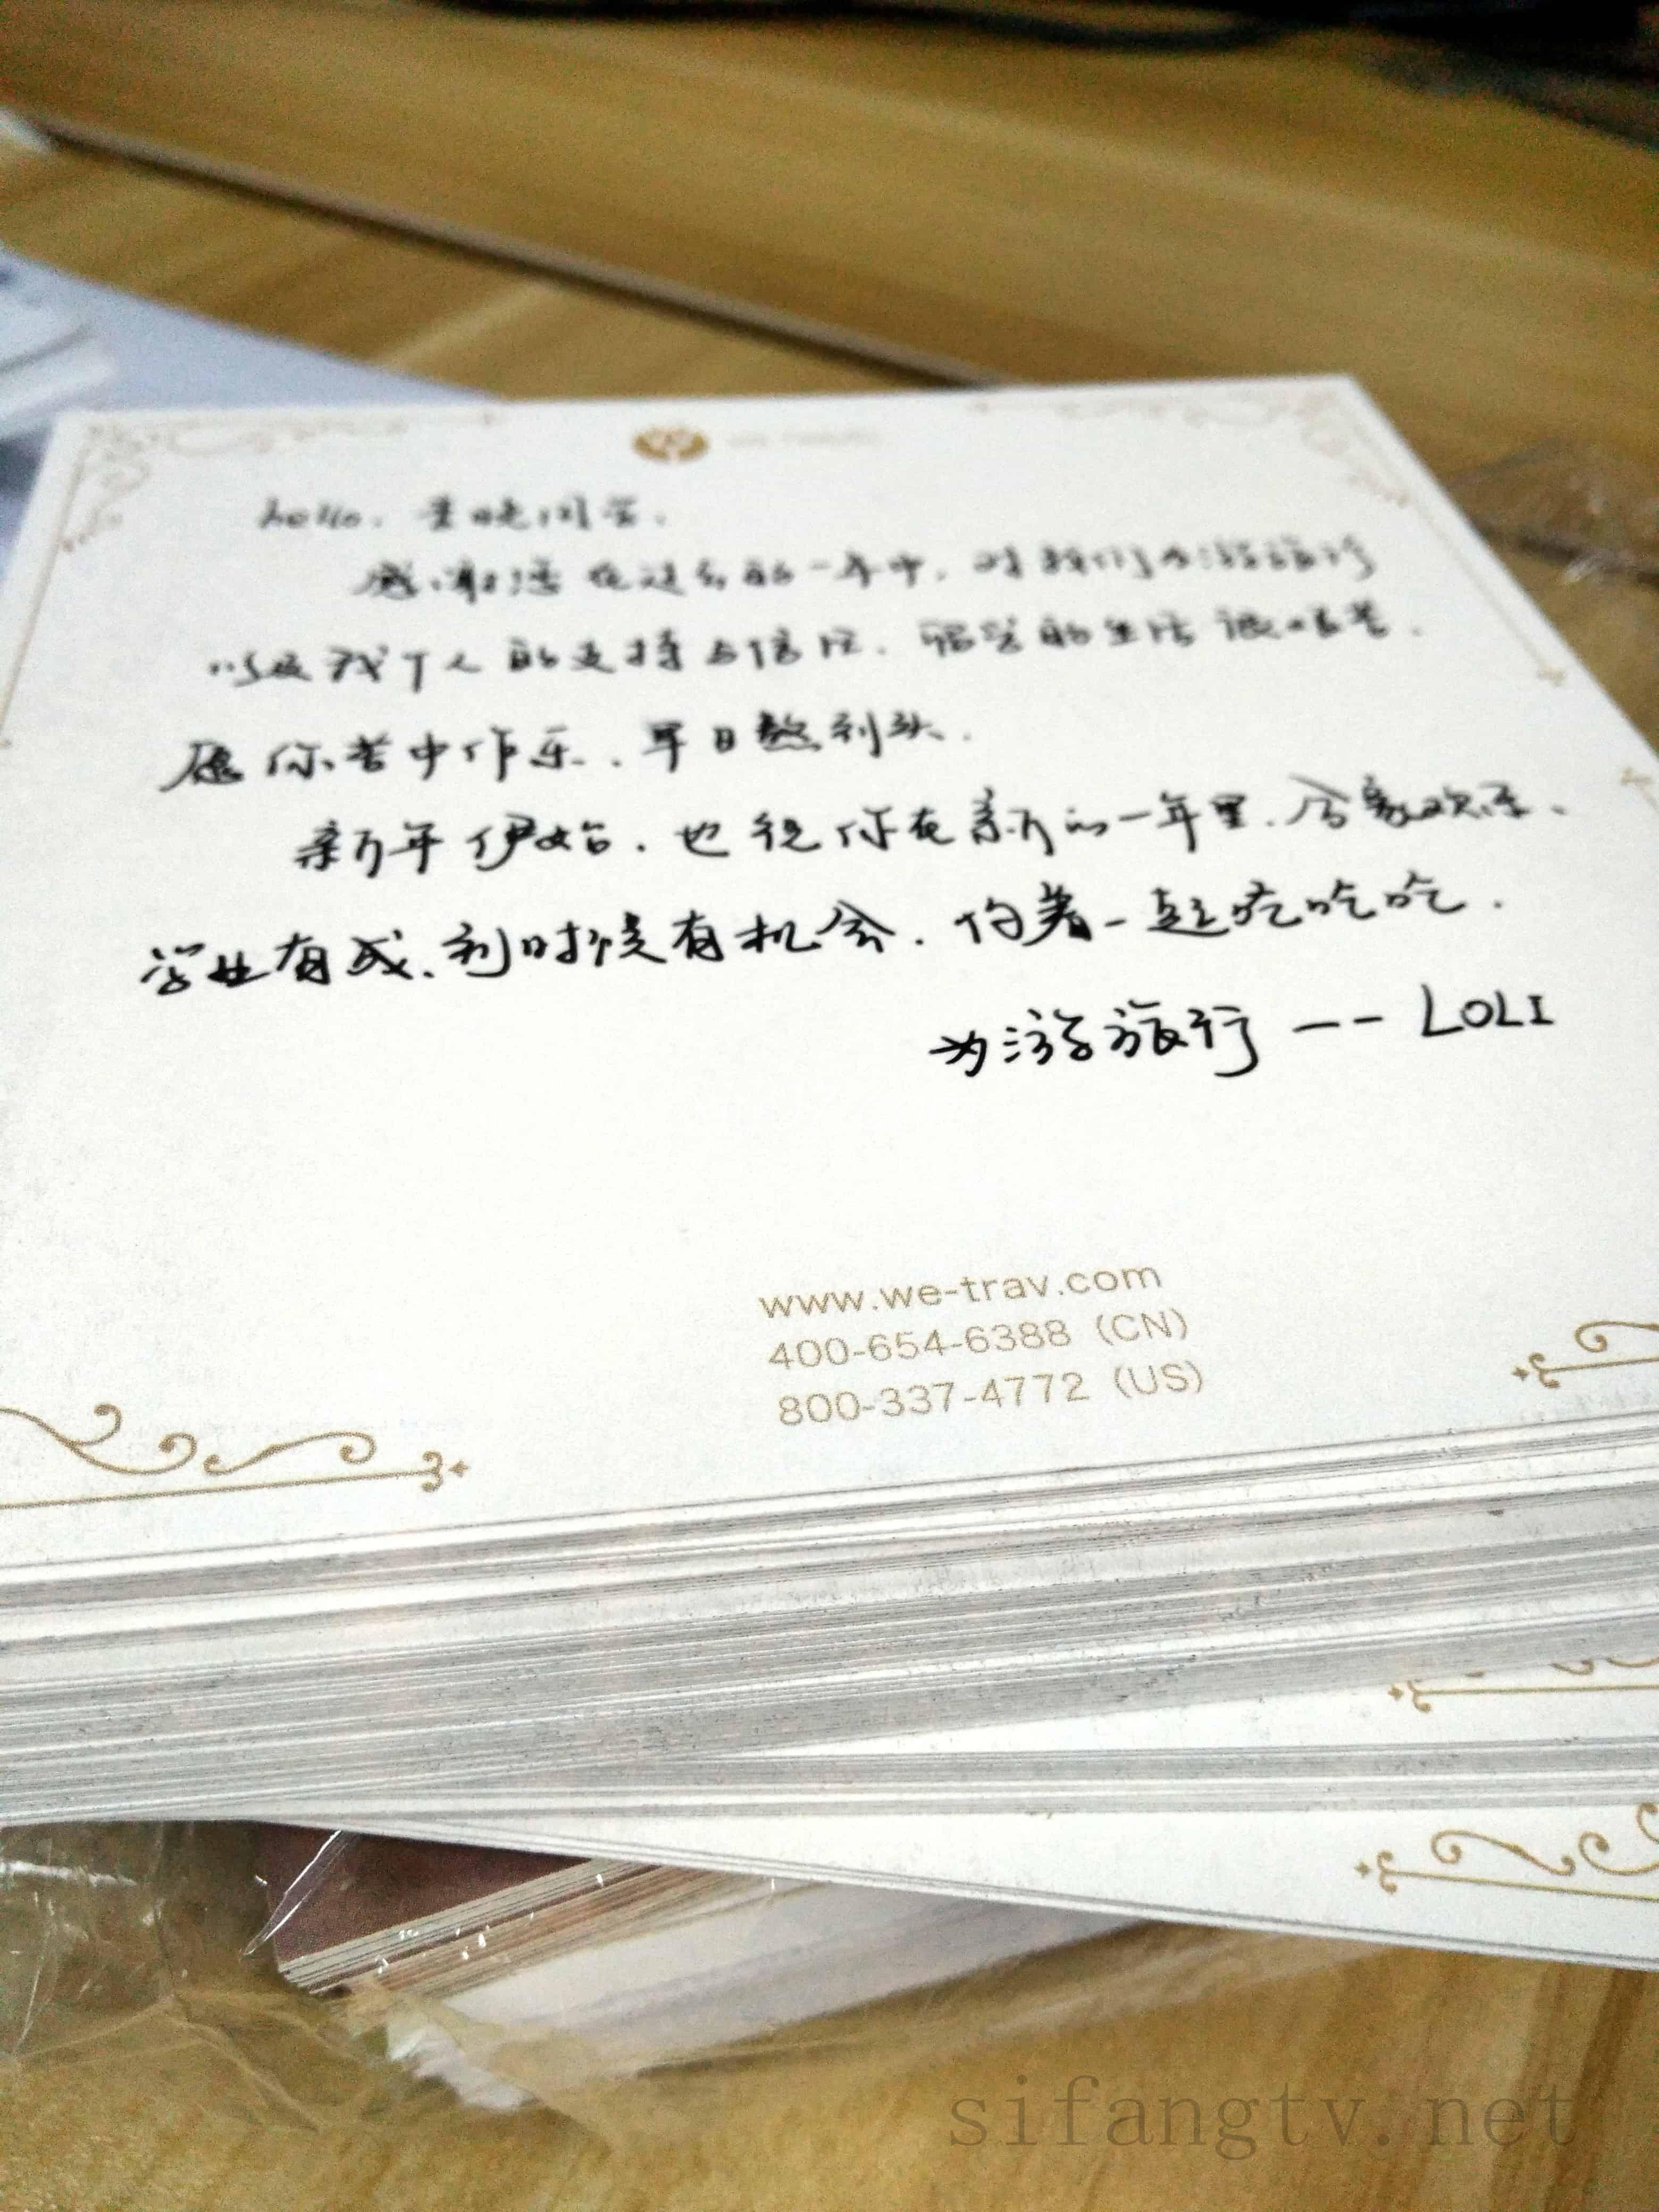 hello. 同学.
感谢您在过去的一年中. 对我们为游旅行
以及我个人的支持与信任. 留学的生活很艰苦.
愿你苦中作乐. 早日熬到头.
新年伊始. 也祝你在新的一年里. 合家欢乐、
学业有成. 到时候有机会. 约着一起吃吃吃.
为游旅行 -- LOLI
www.we-trav.com
400-654-6388 (CN)
800-337-4772 (US)
sifangtv.net